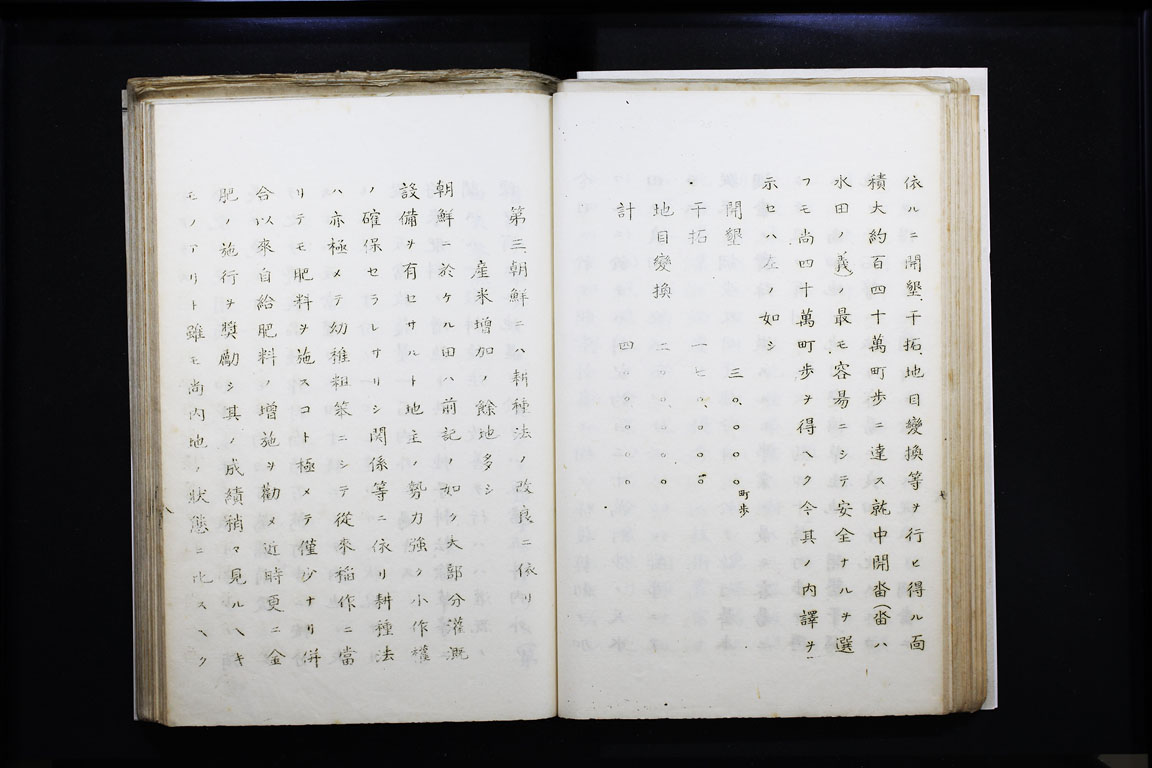 依ルニ開墾、干拓、地目變換等ヲ行ヒ得ル面
積大約百四十萬町歩ニ達ス就中開畓(畓ハ
水田ノ義)ノ最モ容易ニシテ安全ナルヲ選
フモ尚四十萬町歩ヲ得ヘク今其ノ内譯ヲ
示セハ左ノ如シ
開墾 三〇、〇〇〇町歩
干拓 一七〇、〇〇〇
地目變換 二〇〇、〇〇〇
計 四〇〇、〇〇〇
第三、朝鮮ニハ耕種法ノ改良ニ依リ
産米増加ノ餘地多シ
朝鮮ニ於ケル田ハ前記ノ如ク大部分灌漑
設備ヲ有セサルト地主ノ勢力強ク小作權
ノ確保セラレサリシ関係等ニ依リ耕種法
ハ亦極メテ幼稚粗笨ニシテ從來稲作ニ當
リテモ肥料ヲ施スコト極メテ僅少ナリ併
合以來自給肥料ノ増施ヲ勸メ近時更ニ金
肥ノ施行ヲ奬勵シ其ノ成績稍々見ルヘキ
モノアリト雖モ尚内地ノ狀態ニ比スヘク